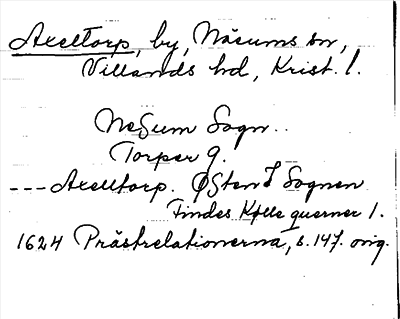 Axeltorp, by, Näsums sn,
Villands hd, Krist. l.
Nesum Sogn..
Torper 9.
---Axelltorp. Østen I Sognen
Findes Kølle querner 1.
1624 Prästrelationerna, s. 147. orig.